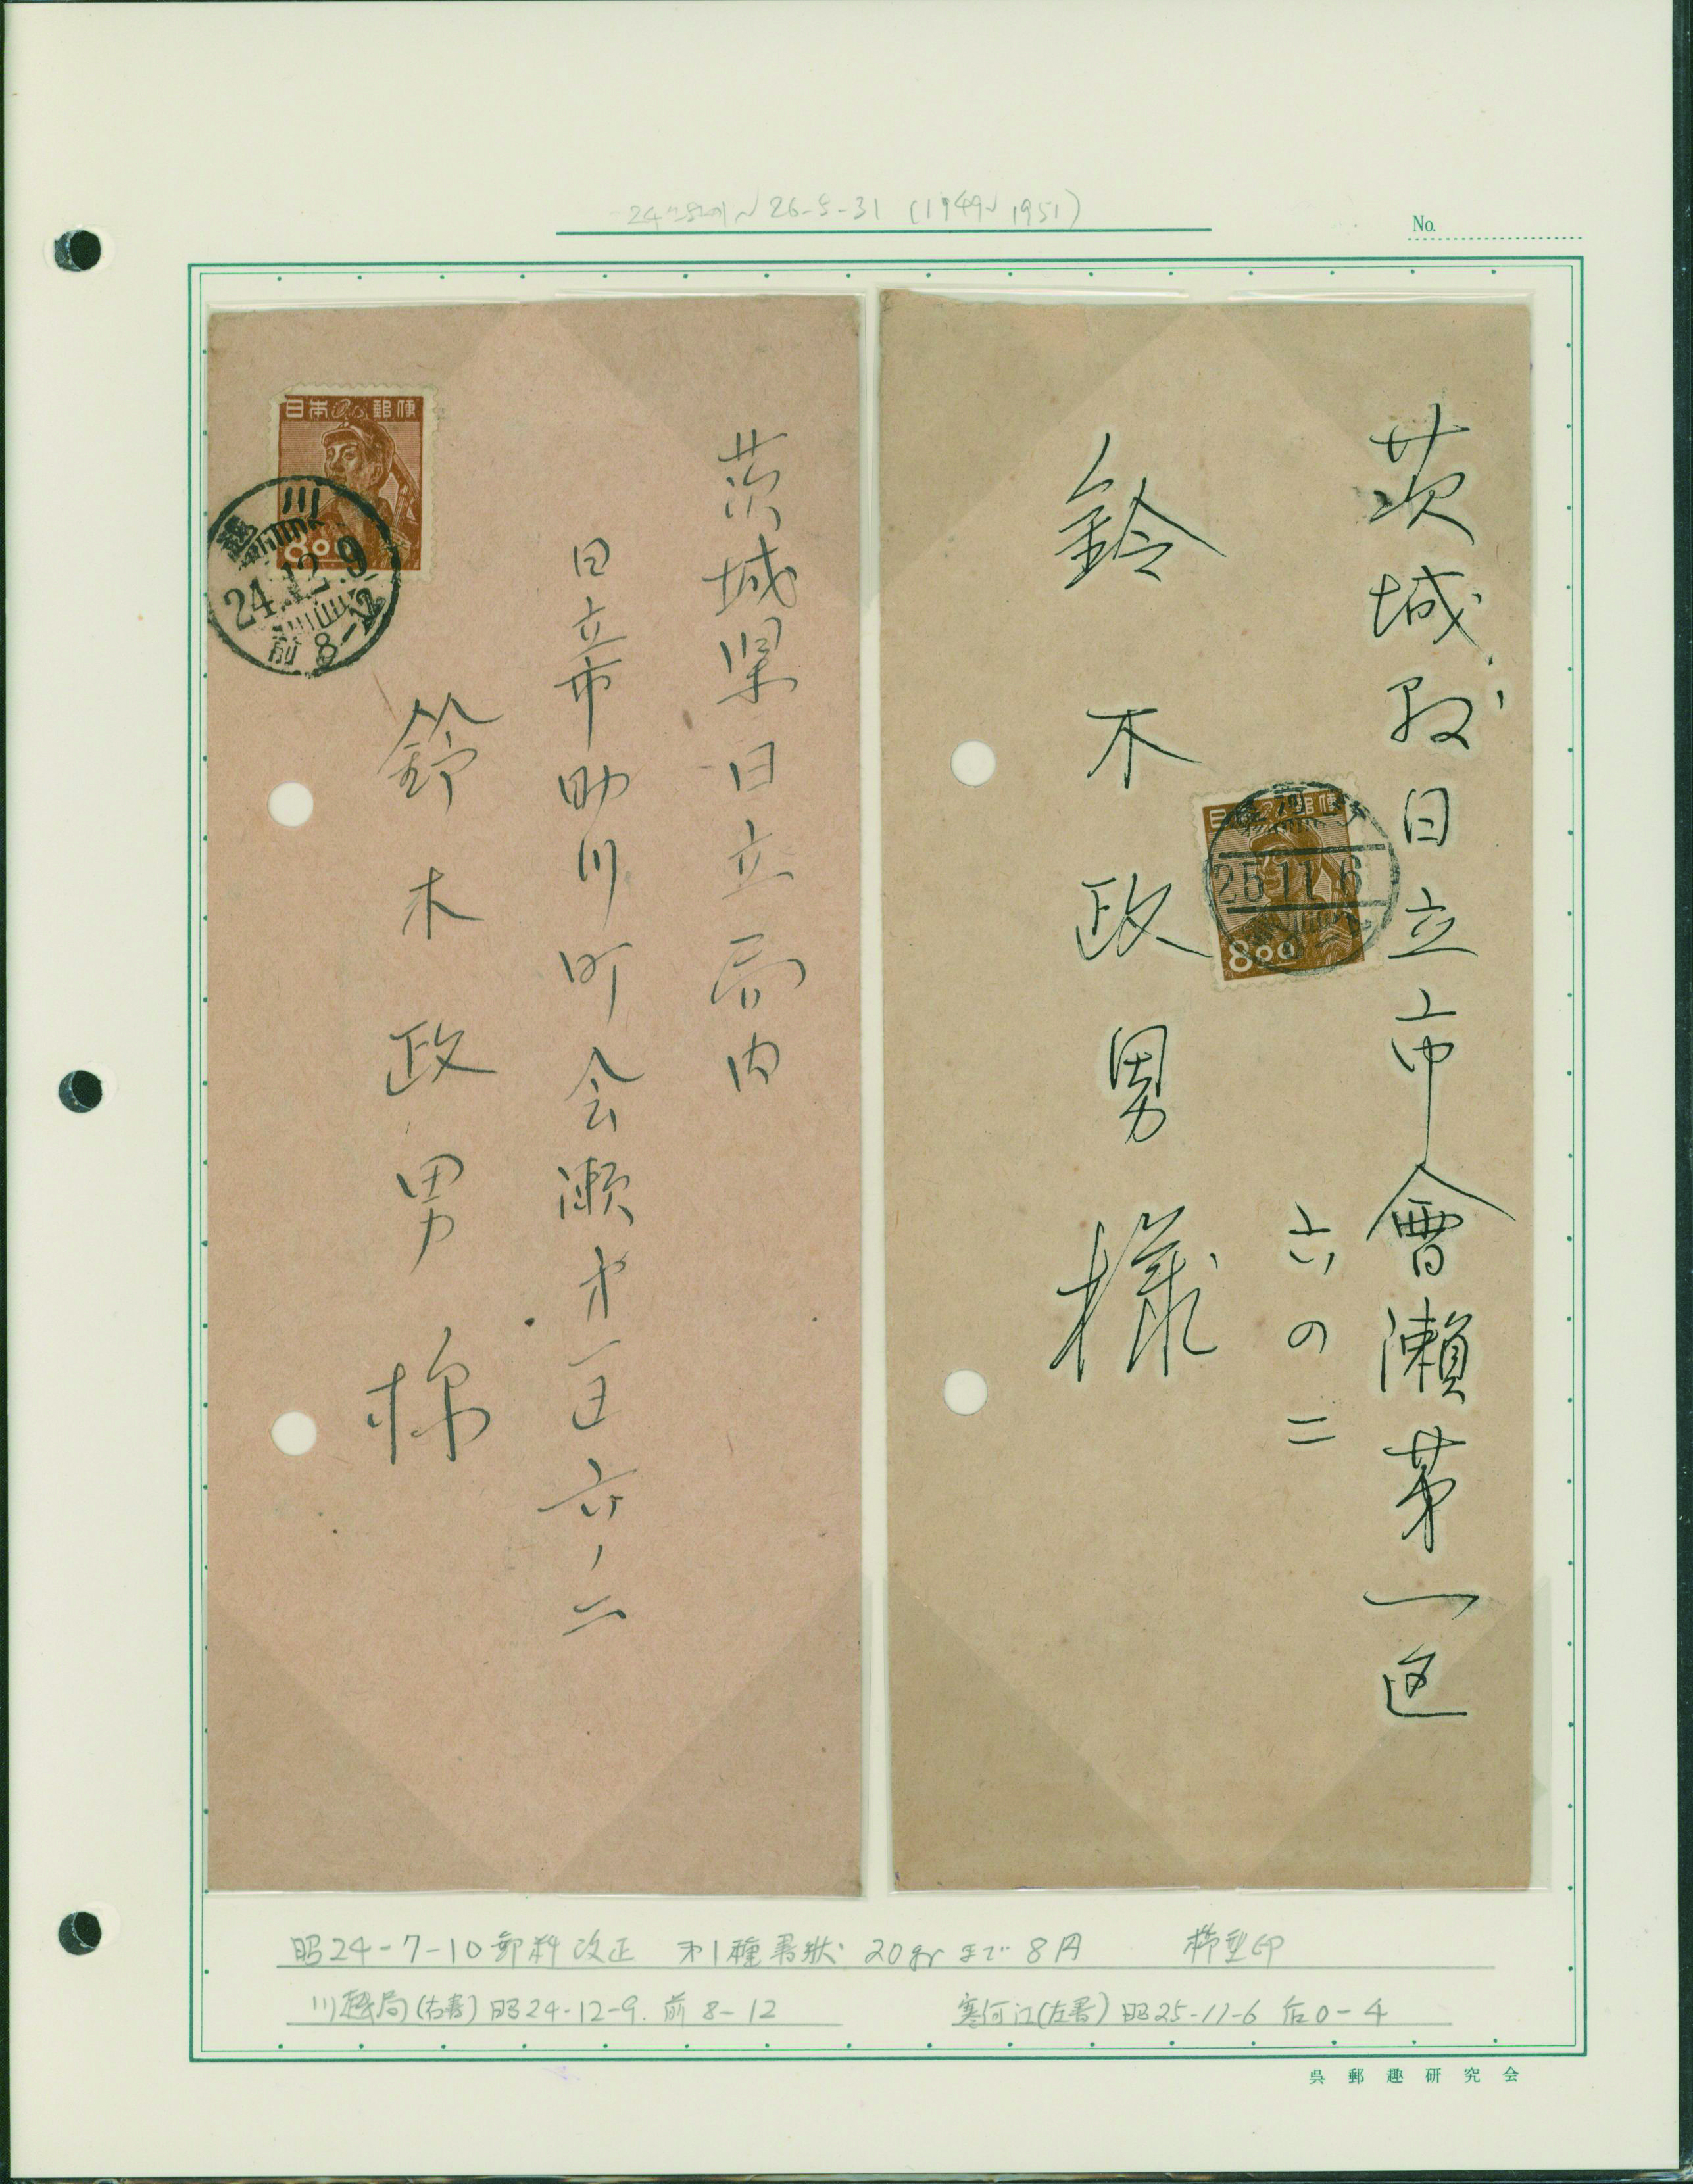 26-5-31 (1949~1951)
No.
日本郵便
800
川越
24.12.9
前 8-12
茨城県日立局内
日立市助川町会瀬才一区六ノ二
鈴木政男様
日本郵便
800
25.11.6
茨城縣日立市會瀬第一区
六の二
鈴木政男様
昭24-7-10郵料改正 才1種書状 20grまで 8円 櫛型印
川越局(右書)昭24-12-9. 前 8-12
寒河江(左書)昭25-11-6 后0-4
呉郵趣研究会